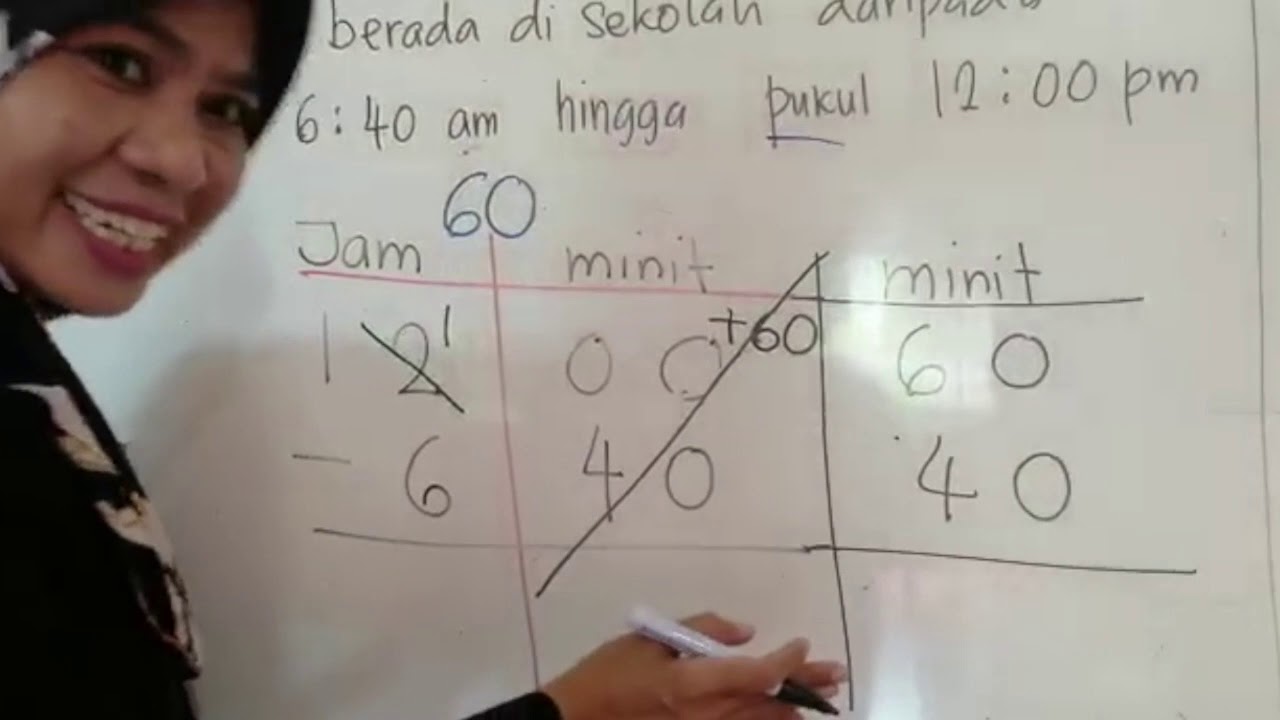 berada di sekolah daripada
6:40 am hingga pukul 12:00 pm
60
Jam minit minit
1 2 1 0 0 +60 6 0
- 6 4 0 4 0